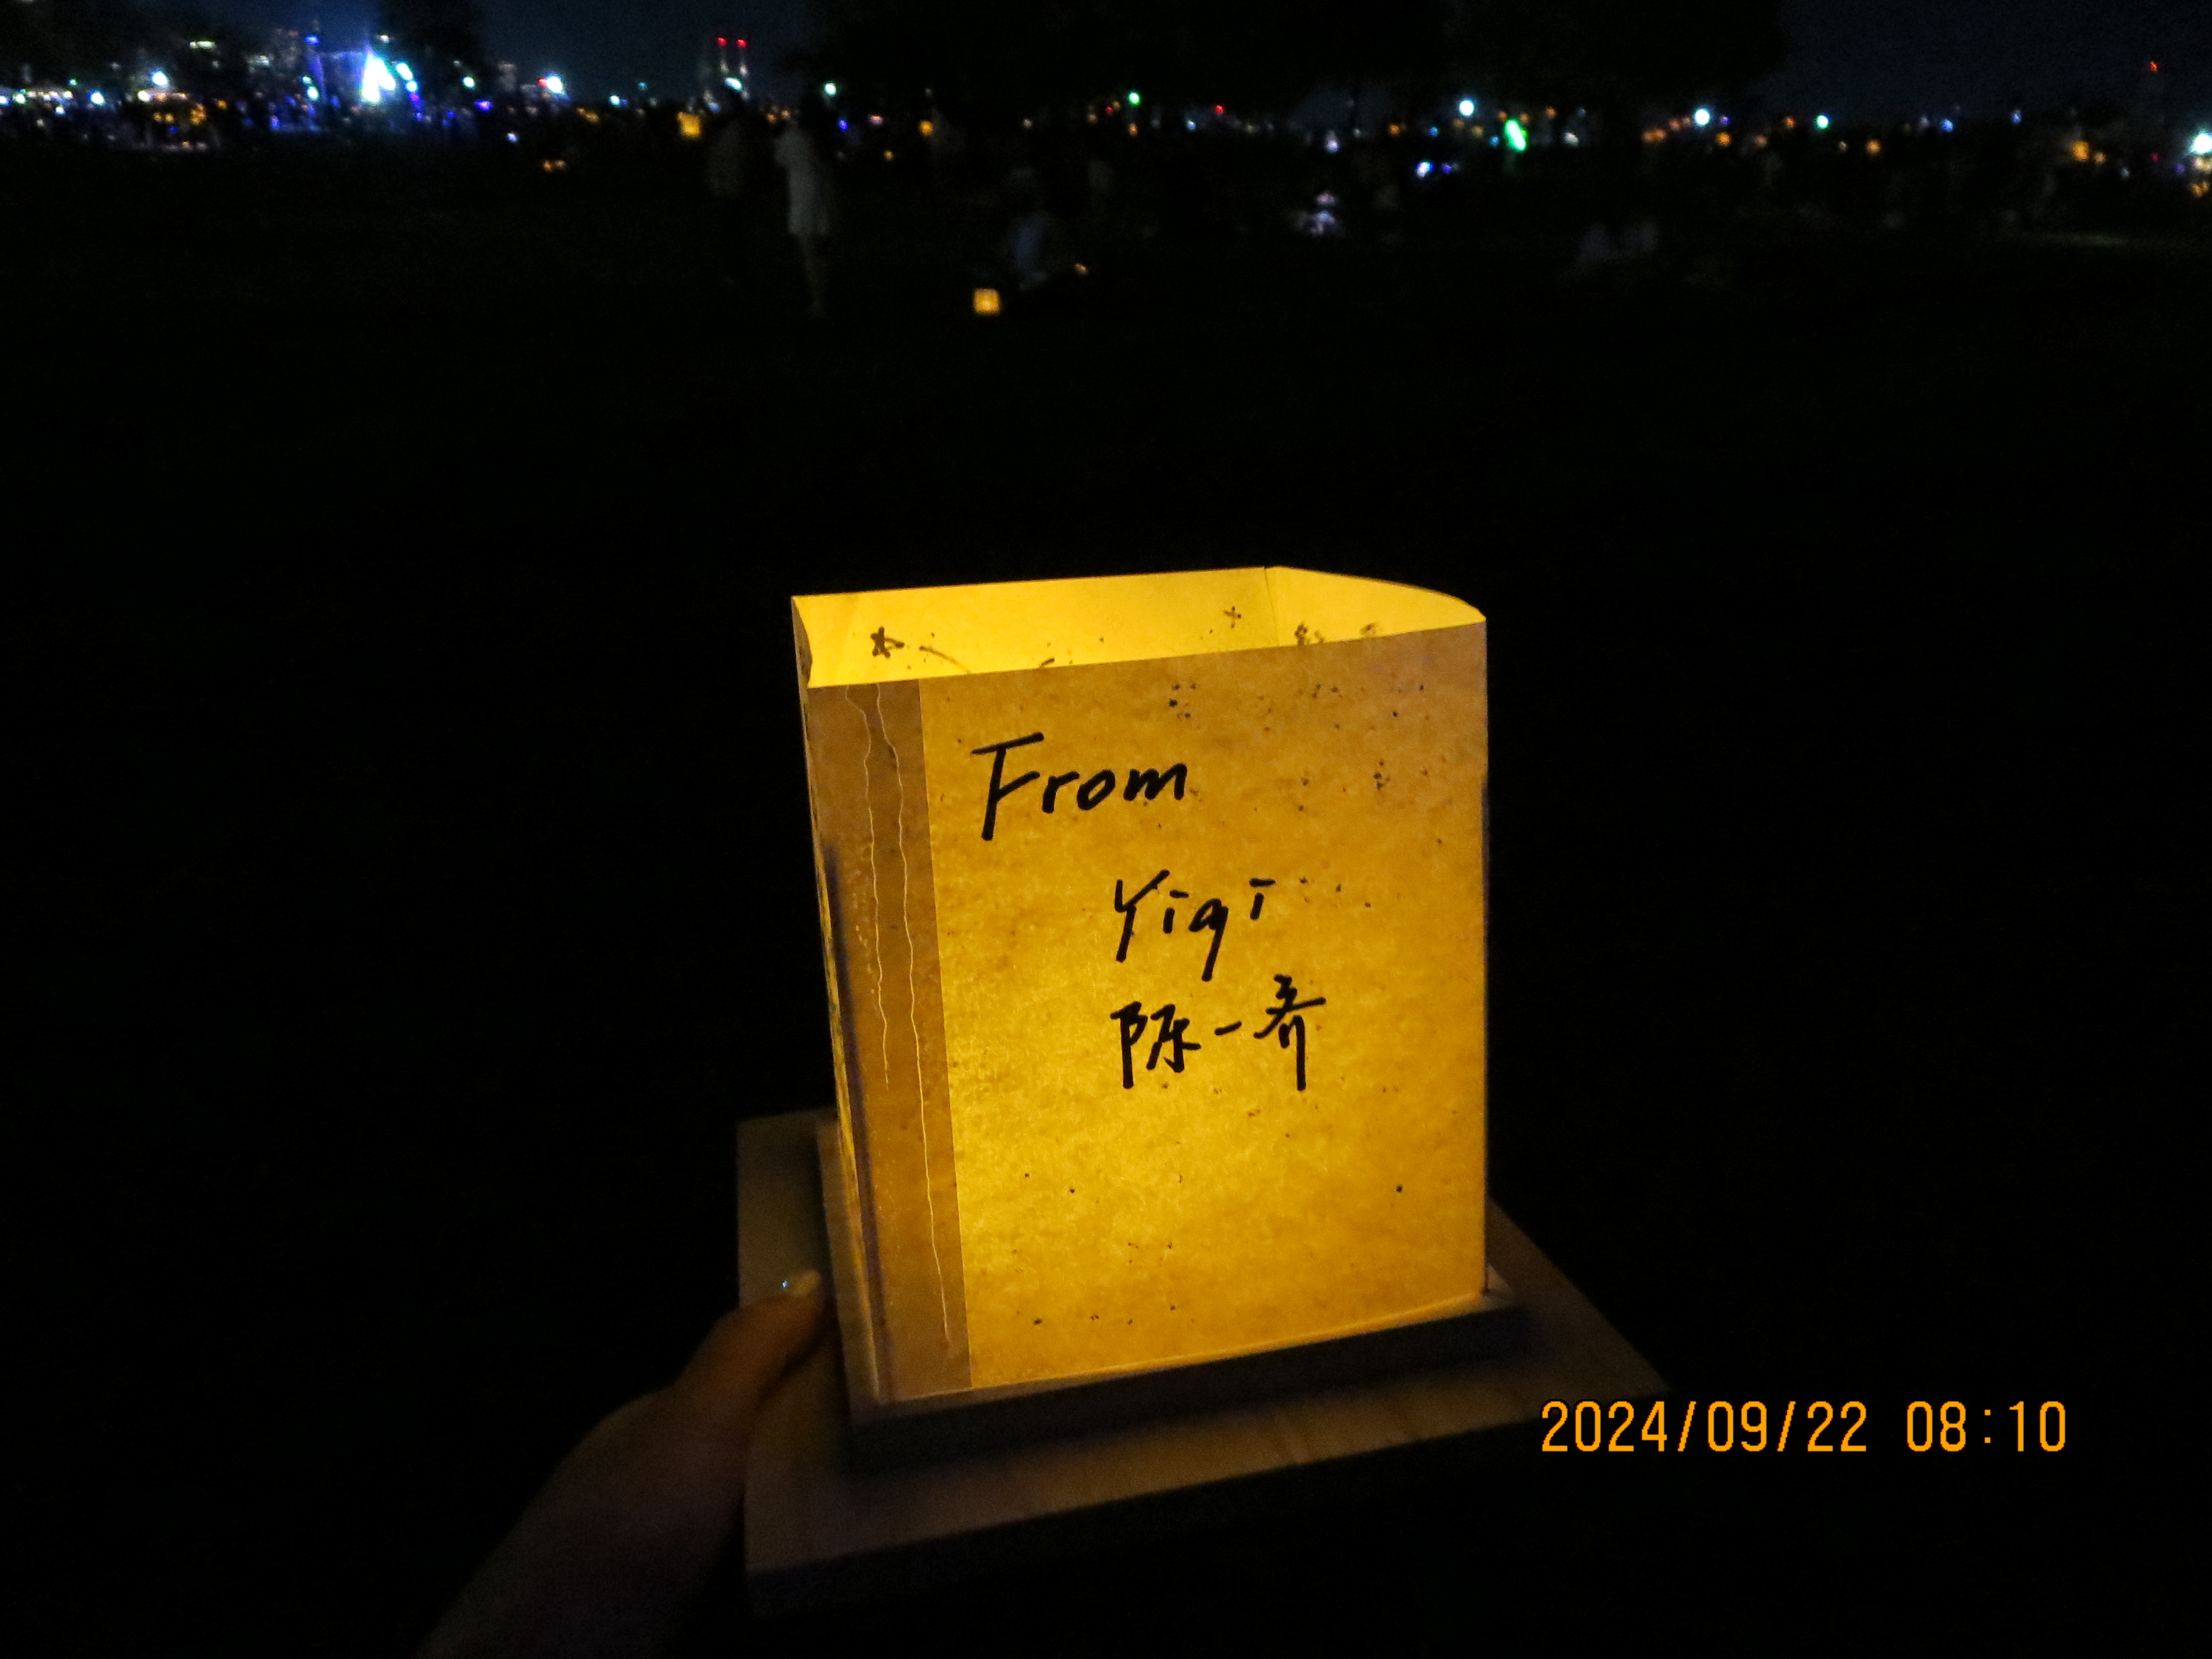 From
Yiqi
陈一齐
2024/09/22 08:10